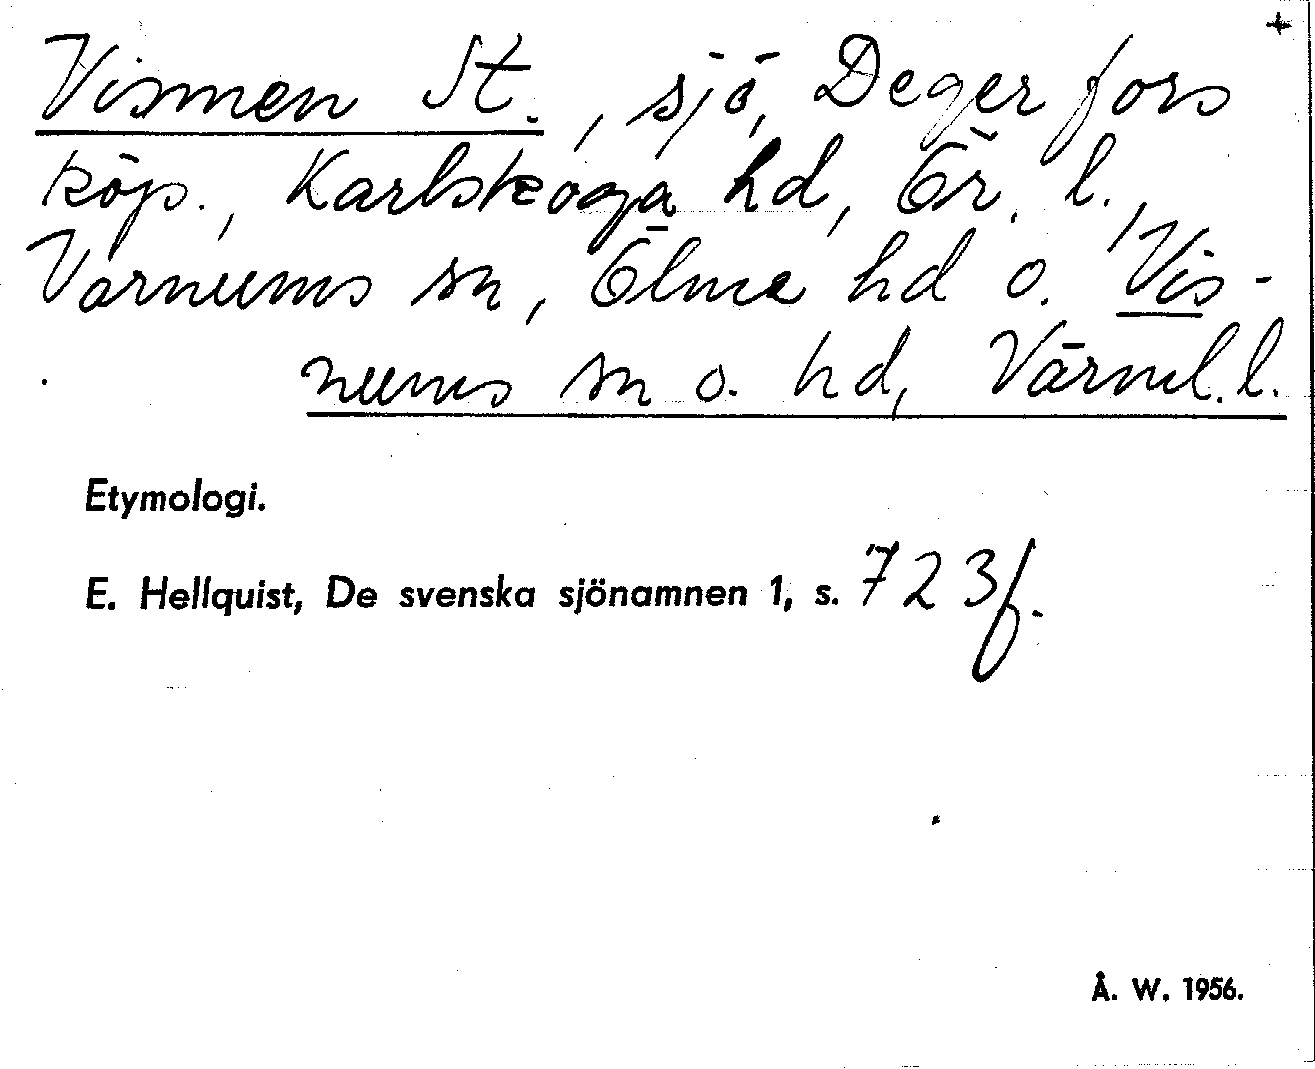 +
Vismen St., sjö, Degerfors
köp., Karlskoga hd, Ör. l.,
Varnums sn, Ölme hd o. Vis-
nums sn o. hd, Värml. l.
Etymologi.
E. Hellquist, De svenska sjönamnen 1, s. 723f.
Å. W. 1956.